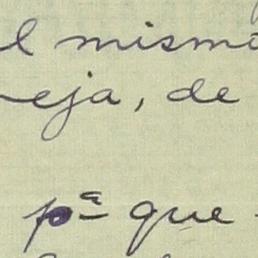 l mismo
eja, de
pª que